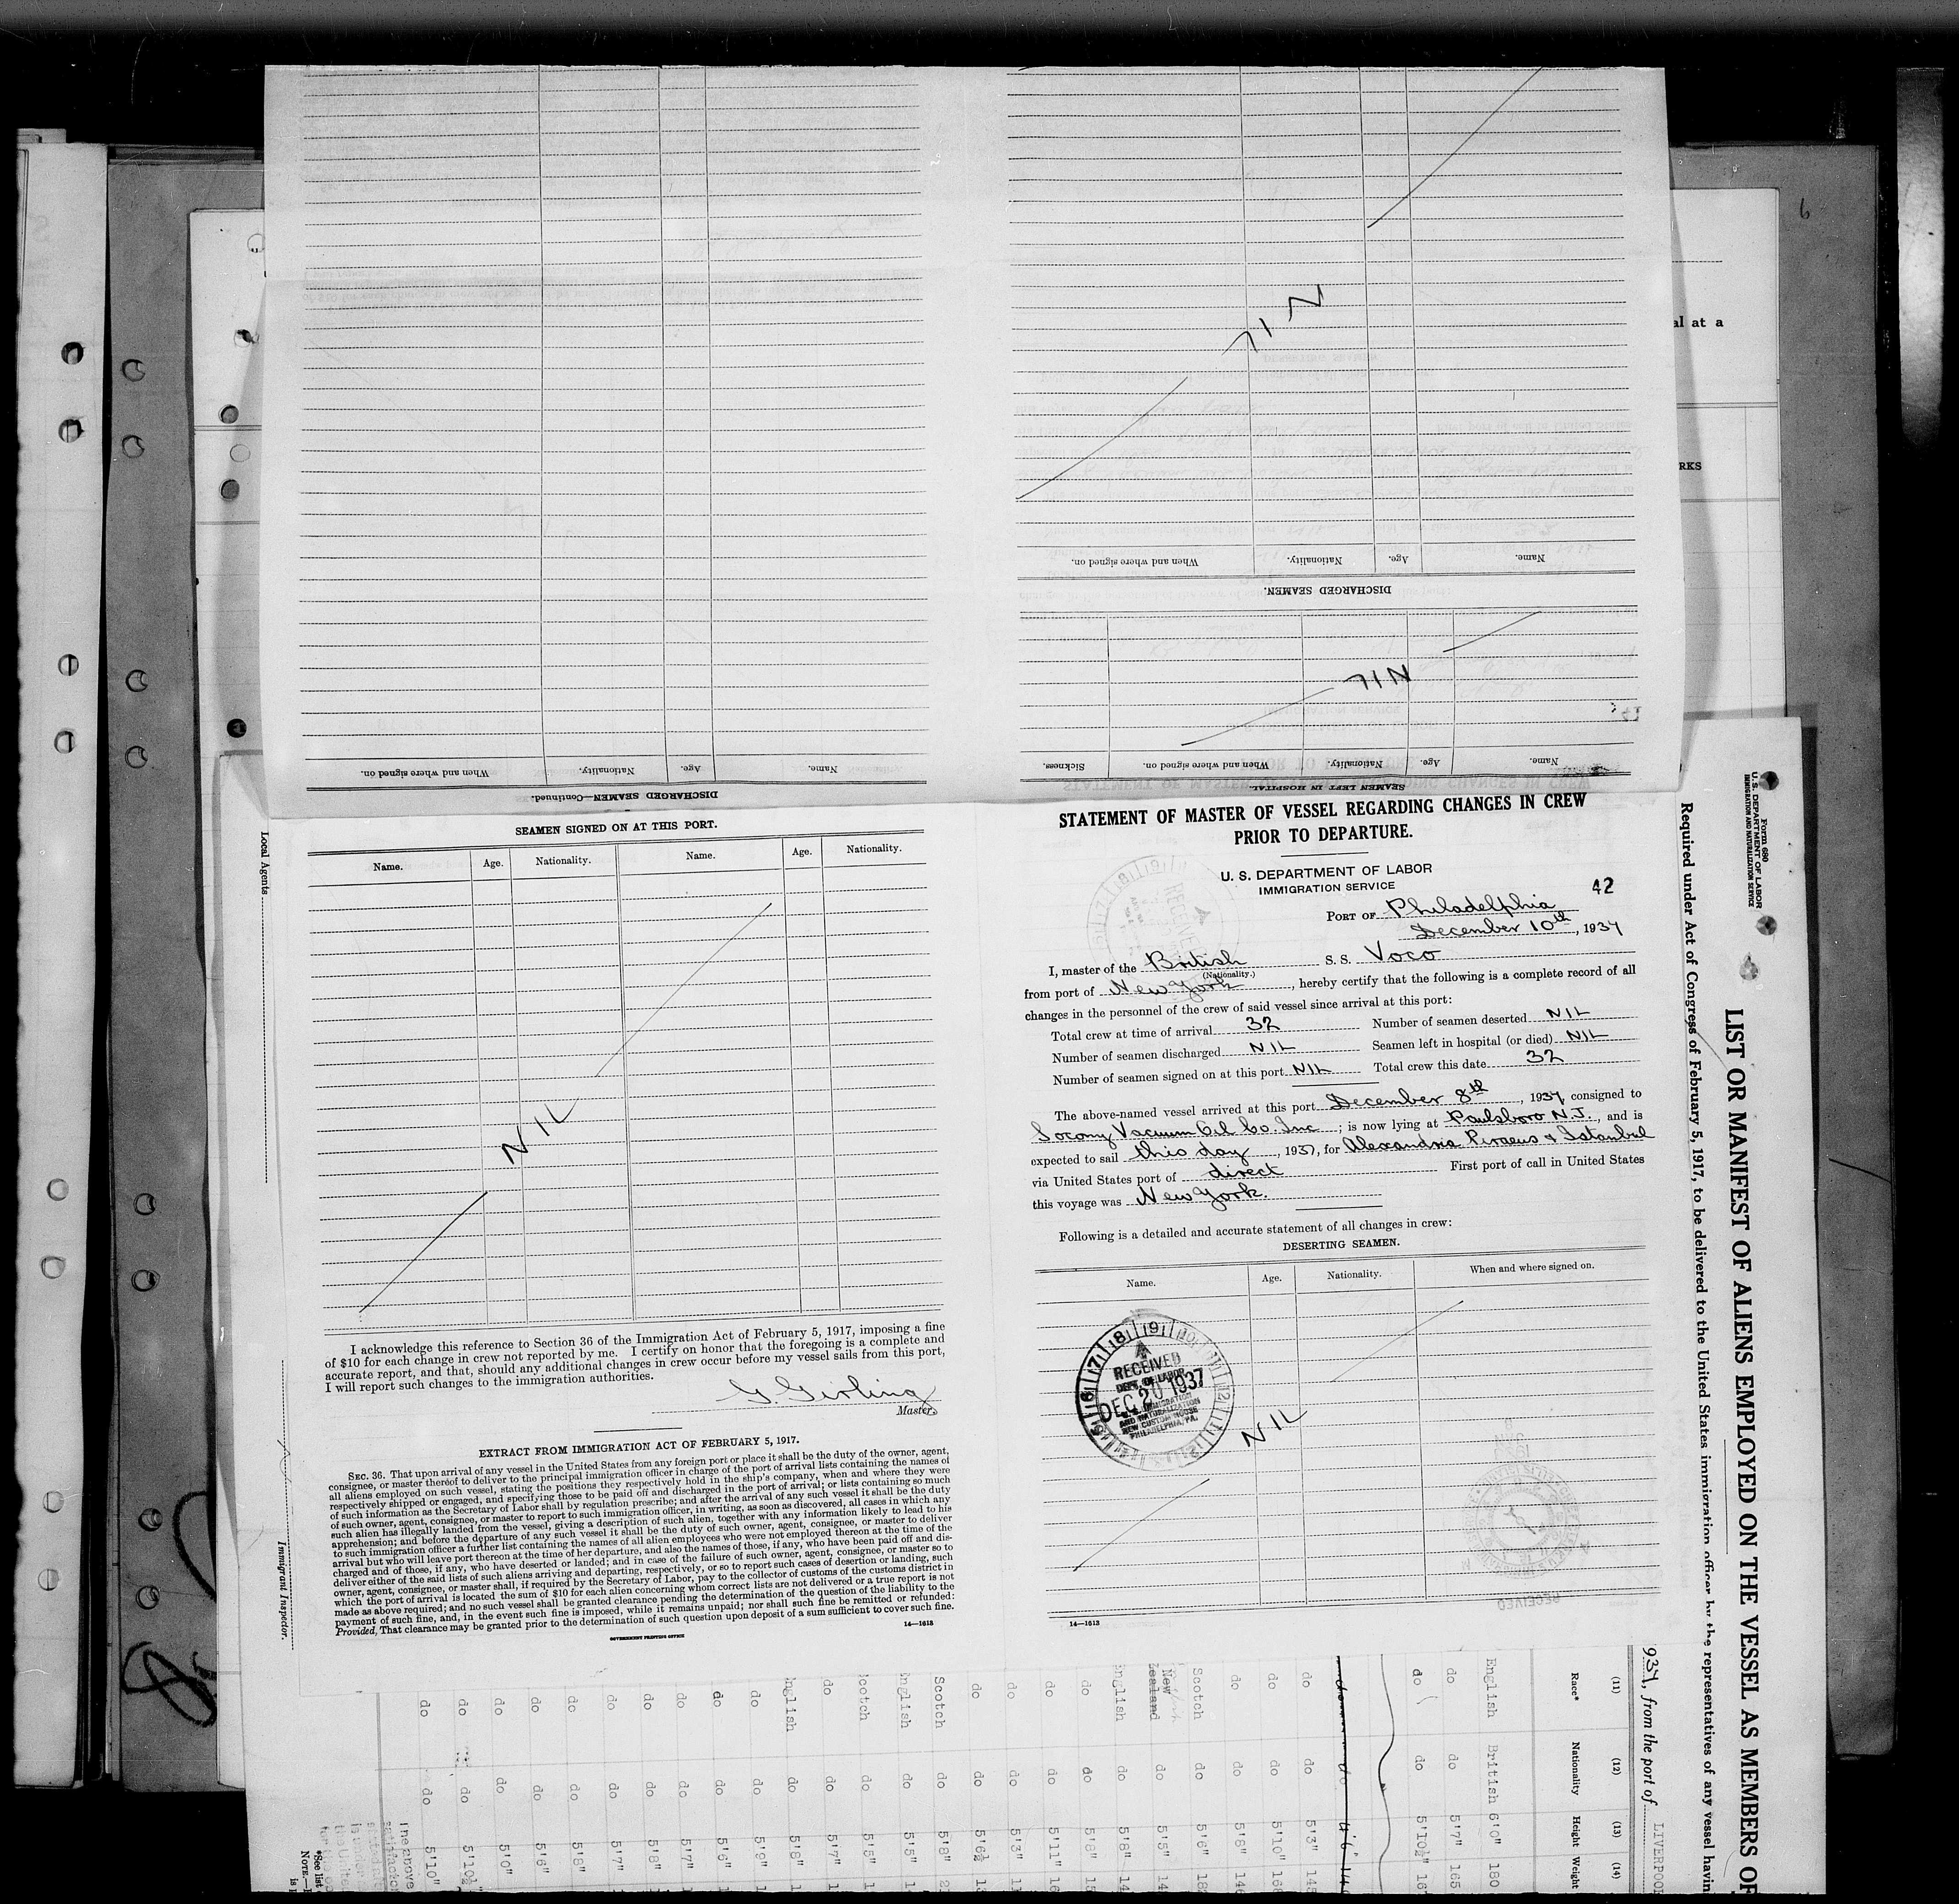 al at a
RKS
6
DISCHARGED SEAMEN.
Name. Age. Nationality. When and where signed on.
NIL
SEAMEN LEFT IN HOSPITAL.
Name. Age. Nationality. When and where signed on. Sickness.
NIL
DISCHARGED SEAMEN—Continued.
Name. Age. Nationality. When and where signed on.
SEAMEN SIGNED ON AT THIS PORT.
Name. Age. Nationality. Name. Age. Nationality.
NIL
I acknowledge this reference to Section 36 of the Immigration Act of February 5, 1917, imposing a fine
of $10 for each change in crew not reported by me. I certify on honor that the foregoing is a complete and
accurate report, and that, should any additional changes in crew occur before my vessel sails from this port,
I will report such changes to the immigration authorities.
G. Girling
Master.
EXTRACT FROM IMMIGRATION ACT OF FEBRUARY 5, 1917.
SEC. 36. That upon arrival of any vessel in the United States from any foreign port or place it shall be the duty of the owner, agent,
consignee, or master thereof to deliver to the principal immigration officer in charge of the port of arrival lists containing the names of
all aliens employed on such vessel, stating the positions they respectively hold in the ship's company, when and where they were
respectively shipped or engaged, and specifying those to be paid off and discharged in the port of arrival; or lists containing so much
of such information as the Secretary of Labor shall by regulation prescribe; and after the arrival of any such vessel it shall be the duty
of such owner, agent, consignee, or master to report to such immigration officer, in writing, as soon as discovered, all cases in which any
such alien has illegally landed from the vessel, giving a description of such alien, together with any information likely to lead to his
apprehension; and before the departure of any such vessel it shall be the duty of such owner, agent, consignee, or master to deliver
to such immigration officer a further list containing the names of all alien employees who were not employed thereon at the time of the
arrival but who will leave port thereon at the time of her departure, and also the names of those, if any, who have been paid off and dis-
charged and of those, if any, who have deserted or landed; and in case of the failure of such owner, agent, consignee, or master so to
deliver either of the said lists of such aliens arriving and departing, respectively, or so to report such cases of desertion or landing, such
owner, agent, consignee, or master shall, if required by the Secretary of Labor, pay to the collector of customs of the customs district in
which the port of arrival is located the sum of $10 for each alien concerning whom correct lists are not delivered or a true report is not
made as above required; and no such vessel shall be granted clearance pending the determination of the question of the liability to the
payment of such fine, and, in the event such fine is imposed, while it remains unpaid; nor shall such fine be remitted or refunded:
Provided, That clearance may be granted prior to the determination of such question upon deposit of a sum sufficient to cover such fine.
GOVERNMENT PRINTING OFFICE
14—1613
STATEMENT OF MASTER OF VESSEL REGARDING CHANGES IN CREW
PRIOR TO DEPARTURE.
U. S. DEPARTMENT OF LABOR
IMMIGRATION SERVICE
42
PORT OF Philadelphia
December 10th, 1937
I, master of the British S. S. Voco
(Nationality.)
from port of New York, hereby certify that the following is a complete record of all
changes in the personnel of the crew of said vessel since arrival at this port:
Total crew at time of arrival 32 Number of seamen deserted NIL
Number of seamen discharged NIL Seamen left in hospital (or died) NIL
Number of seamen signed on at this port NIL Total crew this date 32
The above-named vessel arrived at this port December 8th, 1937, consigned to
Socony Vacuum Oil Co. Inc; is now lying at Paulsboro N.J., and is
expected to sail this day, 1937, for Alexandria Piraeus & Istanbul
via United States port of direct First port of call in United States
this voyage was New York.
Following is a detailed and accurate statement of all changes in crew:
DESERTING SEAMEN.
Name. Age. Nationality. When and where signed on.
RECEIVED
DEPT. OF LABOR
DEC 20 1937
IMMIGRATION
AND NATURALIZATION
NEW CUSTOM HOUSE
PHILADELPHIA, PA.
NIL
RECEIVED
14—1613
Local Agents
Immigrant Inspector.
Form 680
U. S. DEPARTMENT OF LABOR
IMMIGRATION AND NATURALIZATION SERVICE
LIST OR MANIFEST OF ALIENS EMPLOYED ON THE VESSEL AS MEMBERS OF
Required under Act of Congress of February 5, 1917, to be delivered to the United States immigration officer by the representatives of any vessel havin
937, from the port of LIVERPOOL
(11) (12) (13) (14)
Race* Nationality Height Weight
English British 6'0" 180
do do 5'7" 165
do do 5'10½" 16
do do 5'3" 145
do do 5'10" 168
do do 5'8" 146
Scotch do 5'6" 18
New Zealand do 5'5" 14
nglish do 5'8" 14
do do 5'8" 15
do do 5'11" 16
do do 5'3" 1
do do 5'6½ 13
Scotch do 5'8" 2
nglish do 5'5" 1
cotch do 5'5" 1
do do 5'7" 1
nglish do 5'8" 1
do do 5'9" 1
do do 5'6" 1
do do 5'7" 1
do do 5'8" 1
do do 5'7"
do do 5'8"
do do 5'6"
do do 5'0"
do do 5'10½"
do do 5'10"
The above
*See list
NOTE.—